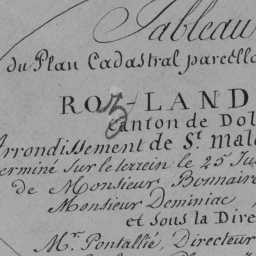 Tableau
du Plan Cadastral parcella
ROZ-LAND
Canton de Dol
Arrondissement de St. Malo
erminé sur le terrein le 25 Jui
de Monsieur Bonnaire
Monsieur Dominiac,
et sous la Dire
Mr. Pontallié, Directeur